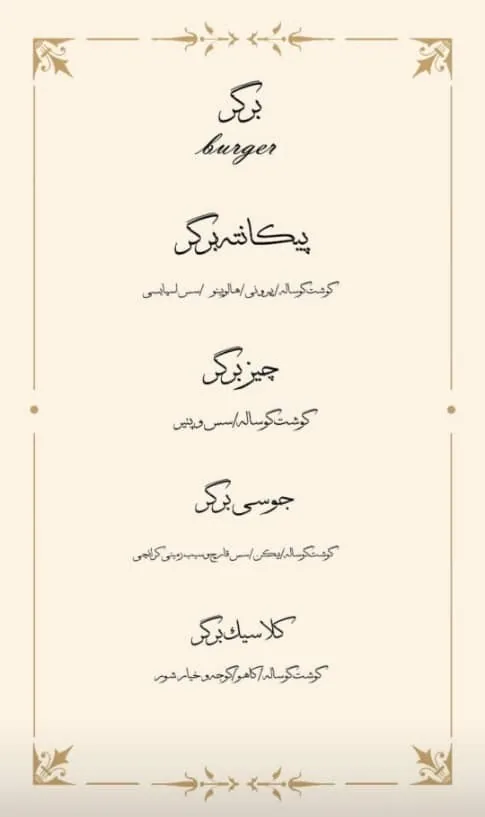 برگر
burger
پیکانته برگر
گوشت گوساله/پپرونی/هالوپینو /سس اسپایسی
چیز برگر
گوشت گوساله/سس و پنیر
جوسی برگر
گوشت گوساله/بیکن/سس قارچ و سیب زمینی کرانچی
کلاسیک برگر
گوشت گوساله/کاهو/گوجه و خیار شور